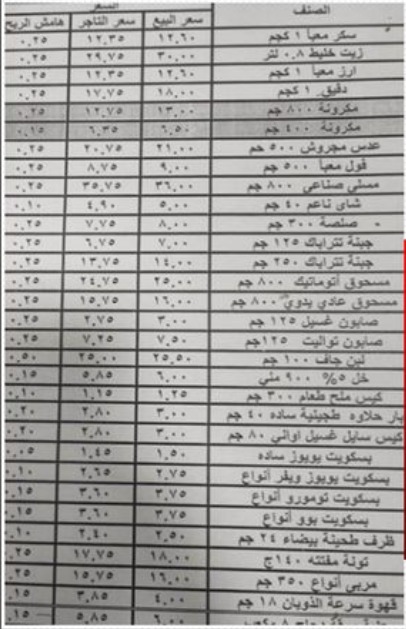 الصنف السعر
سعر البيع سعر التاجر هامش الربح
سكر معبأ ١ كجم ١٢,٦٠ ١٢,٣٥ ٠,٢٥
زيت خليط ٠,٨ لتر ٣٠,٠٠ ٢٩,٧٥ ٠,٢٥
ارز معبأ ١ كجم ١٢,٦٠ ١٢,٣٥ ٠,٢٥
دقيق ١ كجم ١٨,٠٠ ١٧,٧٥ ٠,٢٥
مكرونة ٨٠٠ جم ١٣,٠٠ ١٢,٧٥ ٠,٢٥
مكرونة ٤٠٠ جم ٦,٥٠ ٦,٣٥ ٠,١٥
عدس مجروش ٥٠٠ جم ٢١,٠٠ ٢٠,٧٥ ٠,٢٥
فول معبأ ٥٠٠ جم ٩,٠٠ ٨,٧٥ ٠,٢٥
مسلى صناعي ٨٠٠ جم ٣٦,٠٠ ٣٥,٧٥ ٠,٢٥
شاى ناعم ٤٠ جم ٥,٠٠ ٤,٩٠ ٠,١٠
صلصة ٣٠٠ جم ٨,٠٠ ٧,٧٥ ٠,٢٥
جبنة تتراباك ١٢٥ جم ٧,٠٠ ٦,٧٥ ٠,٢٥
جبنة تتراباك ٢٥٠ جم ١٤,٠٠ ١٣,٧٥ ٠,٢٥
مسحوق أتوماتيك ٨٠٠ جم ٢٥,٠٠ ٢٤,٧٥ ٠,٢٥
مسحوق عادي يدوي ٨٠٠ جم ١٦,٠٠ ١٥,٧٥ ٠,٢٥
صابون غسيل ١٢٥ جم ٣,٠٠ ٢,٧٥ ٠,٢٥
صابون تواليت ١٢٥جم ٧,٥٠ ٧,٢٥ ٠,٢٥
لبن جاف ١٠٠ جم ٢٥,٥٠ ٢٥,٠٠ ٠,٥٠
خل ٥% ٩٠٠ ملي ٦,٠٠ ٥,٨٥ ٠,١٥
كيس ملح طعام ٣٠٠ جم ١,٢٥ ١,١٥ ٠,١٠
بار حلاوه طحينية ساده ٤٠ جم ٣,٠٠ ٢,٨٠ ٠,٢٠
كيس سايل غسيل اواني ٨٠ جم ٣,٠٠ ٢,٨٠ ٠,٢٠
بسكويت يويوز ساده ١,٥٠ ١,٤٥ ٠,٠٥
بسكويت يويوز ويفر أنواع ٢,٧٥ ٢,٦٥ ٠,١٠
بسكويت تومورو أنواع ٣,٧٥ ٣,٦٠ ٠,١٥
بسكويت بوو أنواع ٣,٧٥ ٣,٦٠ ٠,١٥
ظرف طحينة بيضاء ٢٤ جم ٢,٥٠ ٢,٤٠ ٠,١٠
تونة مفتته ١٤٠ج ١٨,٠٠ ١٧,٧٥ ٠,٢٥
مربى أنواع ٣٥٠ جم ١٦,٠٠ ١٥,٧٥ ٠,٢٥
قهوة سرعة الذوبان ١٨ جم ٤,٠٠ ٣,٨٥ ٠,١٥
٦,٠٠ ٥,٨٥ ٠,١٥